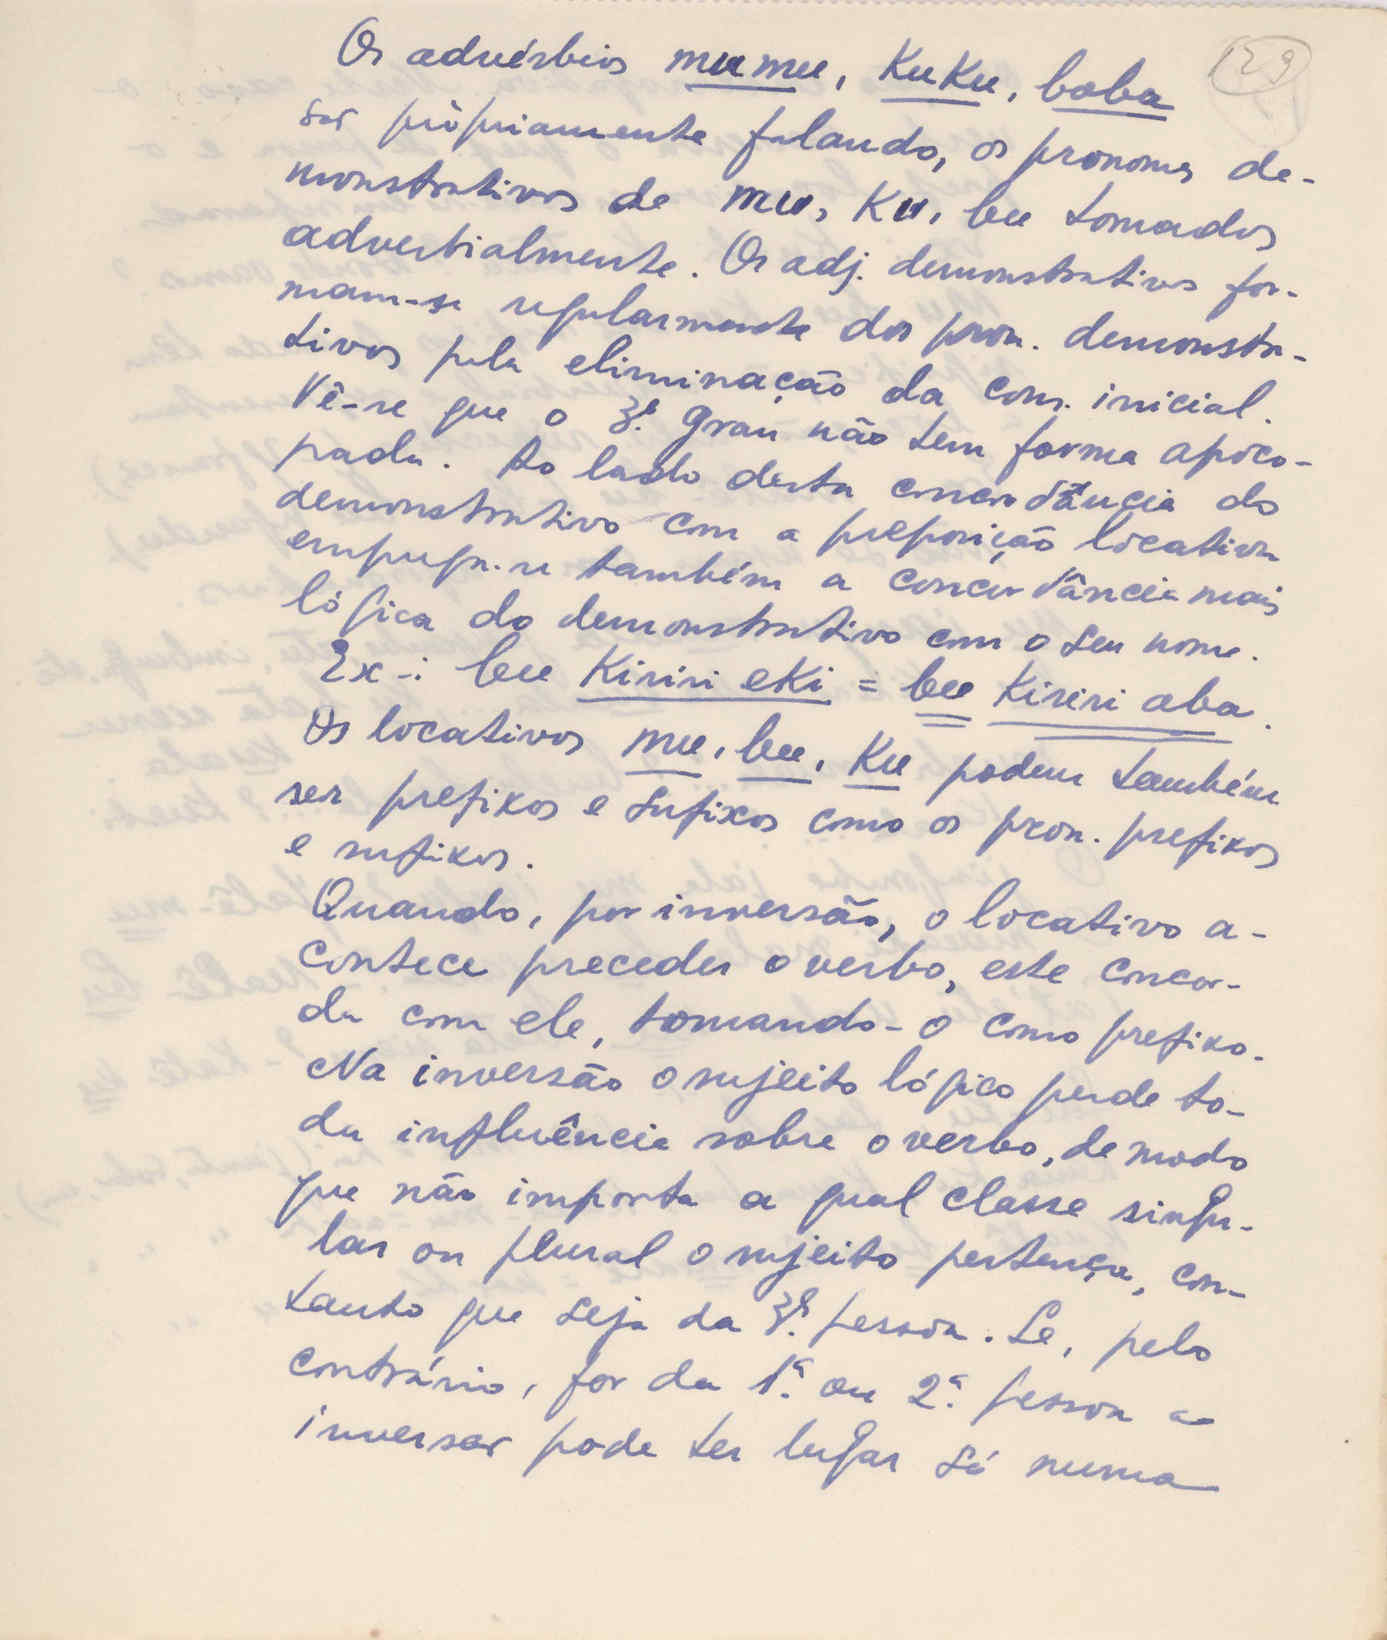 129
Os advérbios mumu, kuku, baba
são pròpriamente falando, os pronomes de-
monstrativos de mu, ku, bu tomados
adverbialmente. Os adj. demonstrativos for-
mam-se regularmente dos pron. demonstra-
tivos pela eliminação da cons. inicial.
Vê-se que o 3º. grau não tem forma apoco-
pada. Ao lado desta concordância do
demonstrativo com a preposição locativa
emprega-se também a concordância mais
lógica do demonstrativo com o seu nome.
Ex-: bu Kiriri eki = bu Kiriri aba.
Os locativos mu, bu, Ku podem também
ser prefixos e sufixos como os pron. prefixos
e sufixos.
Quando, por inversão, o locativo a-
contece preceder o verbo, este concor-
da com ele, tomando-o como prefixo.
Na inversão o sujeito lógico perde to-
da influência sobre o verbo, de modo
que não importa a qual classe singu-
lar ou plural o sujeito pertença, con-
tanto que seja da 3ª. pessoa. Se, pelo
contrário, for da 1ª. ou 2ª. pessoa a
inversão pode ter lugar só numa